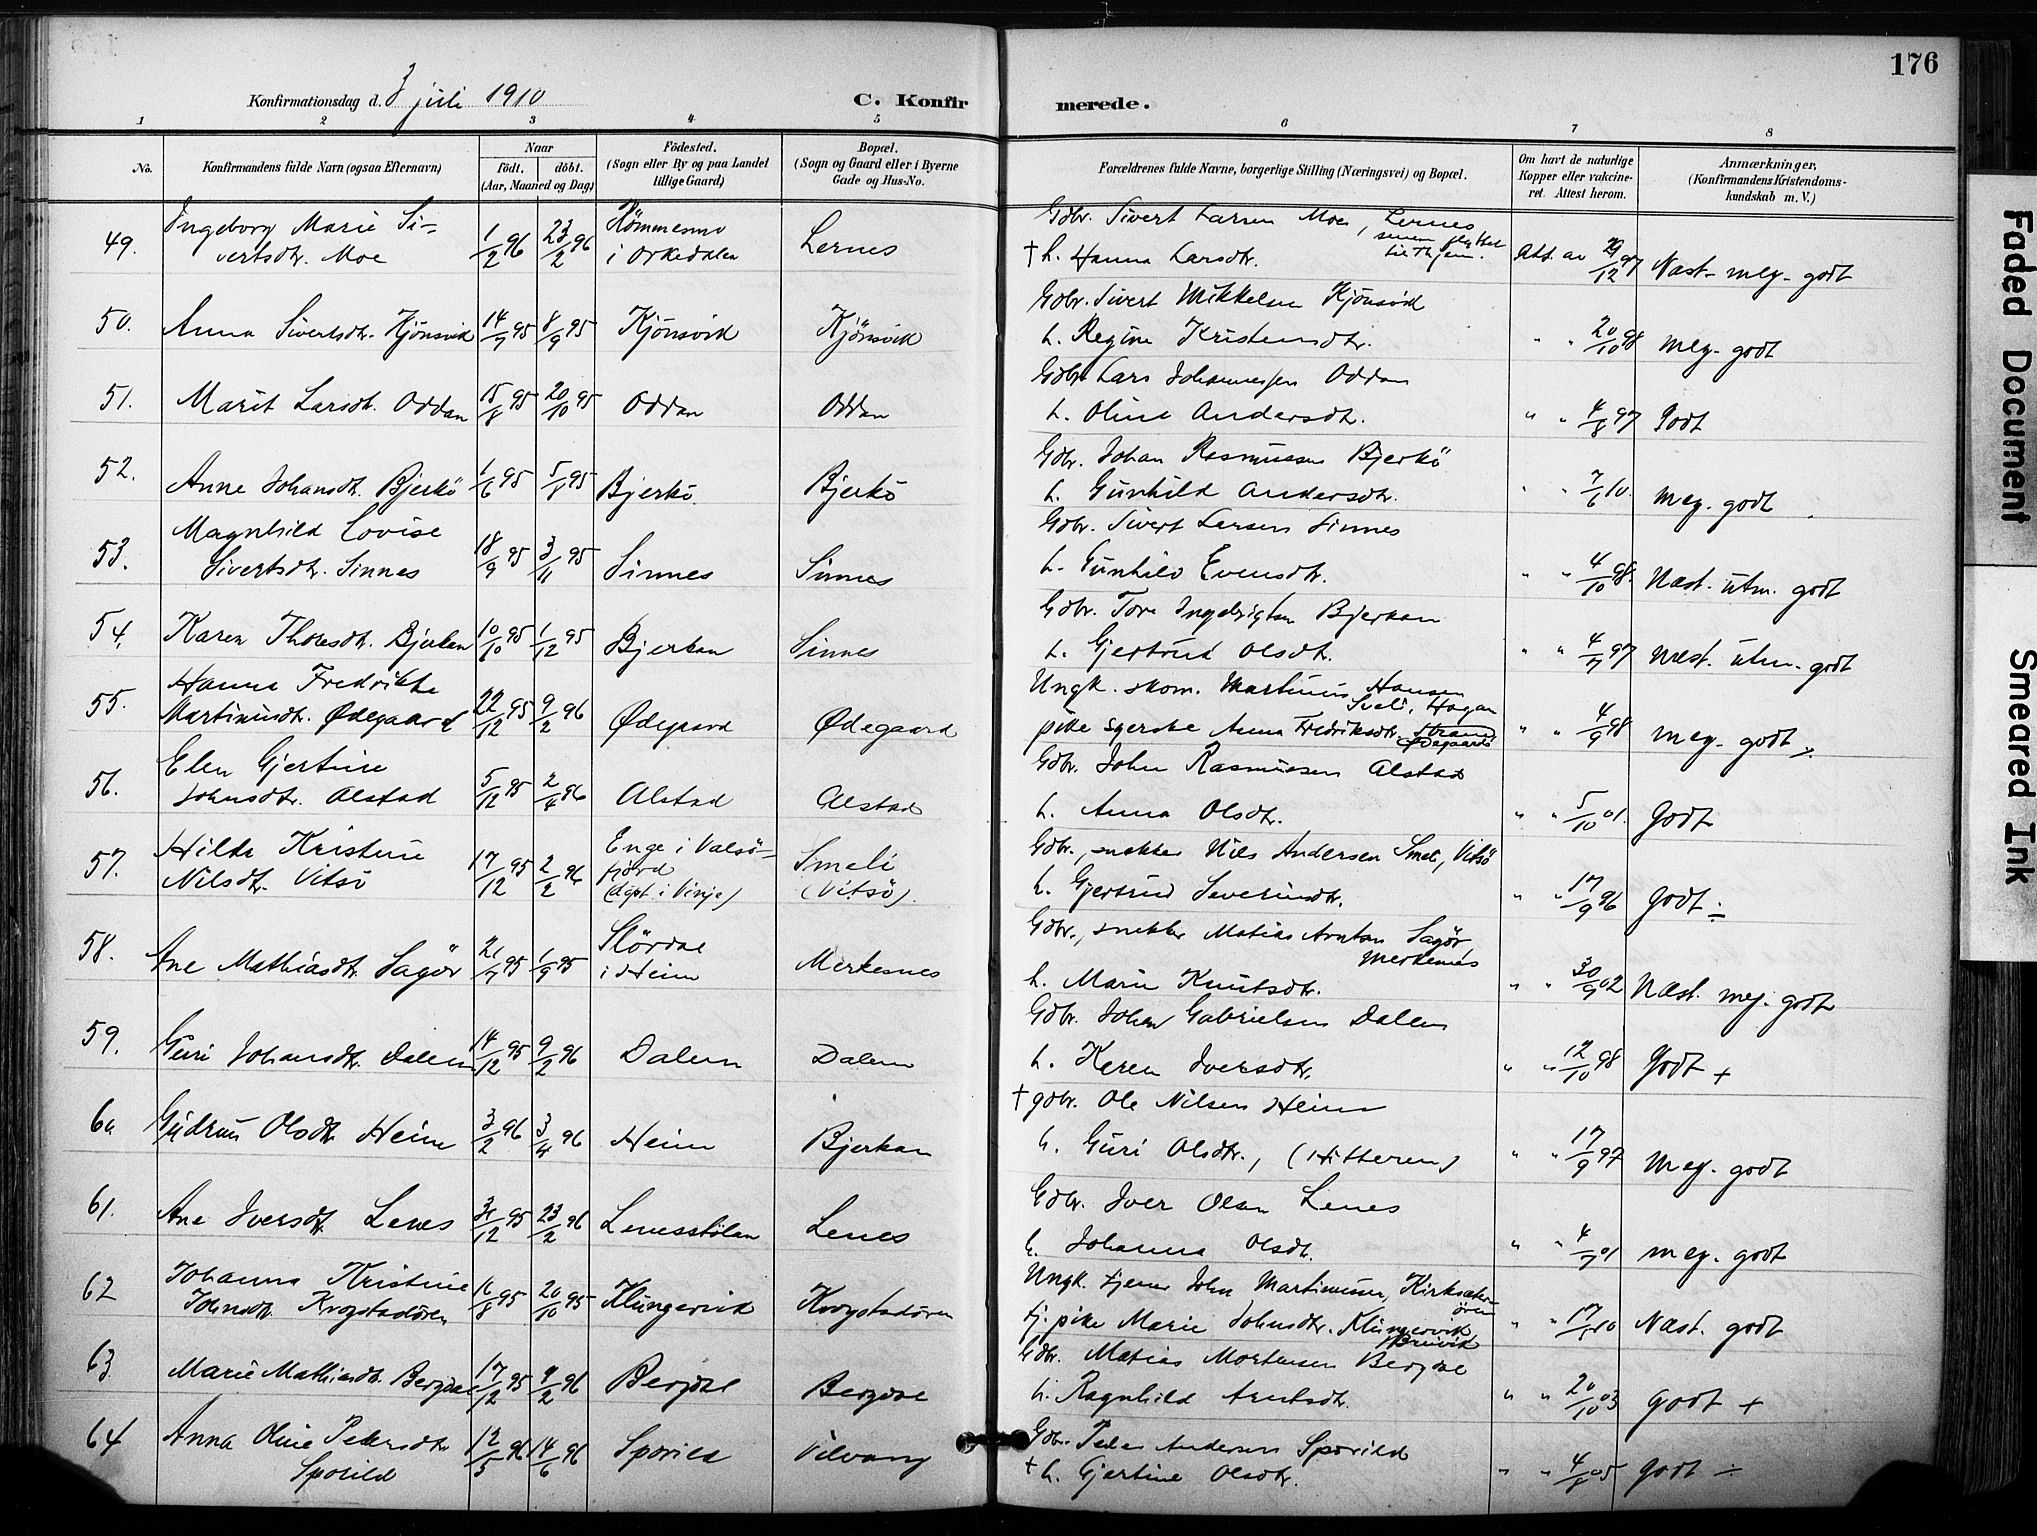 176
Konfirmationsdag d. 3 juli 1910
C. Konfirmerede.
1 2 3 4 5 6 7 8
No.
Konfirmandens fulde Navn (ogsaa Efternavn)
Naar
født. døbt.
(Aar, Maaned og Dag)
Fødested.
(Sogn eller By og paa Landet
tillige Gaard)
Bopæl.
(Sogn og Gaard eller i Byerne
Gade og Hus-No.
Forældrenes fulde Navne, borgerlige Stilling (Næringsvei) og Bopæl.
Om havt de naturlige
Kopper eller vakcine-
ret. Attest herom.
Anmærkninger,
(Konfirmandens Kristendoms-
kundskab m. V.)
49. Ingeborg Marie Si-
vertsdtr. Moe 1/2 96 23/2 96 i Orkedalen Lernes
Gdbr. Sivert Larsen Moe, Lernes
† h. Hanna Larsdtr. Att. av 29/12 97 Næst. meg. godt
50. Anna Sivertsdtr. Kjönsvik 14/7 95 8/9 95 Kjönsvik Kjönsvik
Gdbr. Sivert Mikkelsen Kjönsvik
h. Regine Kristensdtr. " " 20/10 98 meg. godt
51. Marit Larsdtr. Oddan 15/8 95 20/10 95 Oddan Oddan
Gdbr. Lars Johannessen Oddan
h. Oline Andersdtr. " " 4/8 97 Godt
52. Anne Johansdtr. Bjerkö 1/6 95 5/8 95 Bjerkö Bjerkö
Gdbr. Johan Rasmussen Bjerkö
h. Gunhild Andersdtr. " " 7/6 10. meg. godt
53. Magnhild Lovise
Sivertsdtr. Sinnes 18/9 95 3/11 95 Sinnes Sinnes
Gdbr. Sivert Larsen Sinnes
h. Gunhild Evensdtr. " " 4/10 98. Næst. utm. godt
54. Karen Thoresdtr. Bjerkan 10/10 95 1/12 95 Bjerkan Sinnes
Gdbr. Tore Ingebrigtsen Bjerkan
h. Gjertrud Olsdtr. " " 4/7 97 Næst. utm. godt
55. Hanna Fredrikke
Martinusdtr. Ødegaard 22/12 95 9/2 96 Ødegaard Ødegaard
Ungk. skom. Martinus Hansen
Sveli, Hagan
pike syerske Anna Fredriksdtr. Strand
Ødegaard " " 4/9 98 meg. godt ÷
56. Elen Gjertine
Johnsdtr. Alstad 5/12 95 2/4 96 Alstad Alstad
Gdbr. John Rasmussen Alstad
h. Anna Olsdtr. " " 5/10 01. Godt
57. Hilda Kristine
Nilsdtr. Vitsö 17/12 95 2/2 96 Enge i Valsö-
fjord
(døpt i Vinje) Smeli
(Vitsö).
Gdbr., snekker Nils Andersen Smeli, Vitsö
h. Gjertrud Severinsdtr. " " 17/9 96 Godt ÷
58. Ane Mathiasdtr. Sagör 21/7 95 1/9 95 Slördal
i Heim Merkesnes
Gdbr., snekker Matias Arntsen Sagör,
Merkesnes
h. Marie Knutsdtr. " " 30/9 02 Næst. meg. godt
59. Guri Johansdtr. Dalem 14/12 95 9/2 96 Dalem Dalem
Gdbr. Johan Gabrielsen Dalem
h. Karen Iversdtr. " " 12/10 98 Godt +
60 Gudrun Olsdtr. Heim 3/2 96 3/4 96 Heim Bjerkan
† gdbr. Ole Nilsen Heim
h. Guri Olsdtr., (Hitteren) " " 17/9 97 Meg. godt
61. Ane Iversdtr. Lenes 31/12 95 23/2 96 Lenesstölan Lenes
Gdbr. Iver Olsen Lenes
h. Johanna Olsdtr. " " 4/7 01 meg. godt
62 Johanna Kristine
Johnsdtr. Krogstadören 16/8 95 20/10 95 Klungervik Krogstadören
Ungk. tjener John Martinussen, Kirksæter-
ören
tj. pike Marie Johnsdtr. Klungervik " " 17/6 10 Næst. godt
63. Marie Mathiasdtr. Bergdal 17/12 95 9/2 96 Bergdal Bergdal
Gdbr. Matias Mortensen Bergdal
h. Ragnhild Arntsdtr. " " 20/10 03 Godt +
64 Anna Oline Pedersdtr.
Sporild 12/5 96 14/6 96 Sporild Vilvang
Gdbr. Peder Andersen Sporild
† h. Gjertine Olsdtr. " " 4/8 05 Godt ÷
Faded Document
Smeared Ink